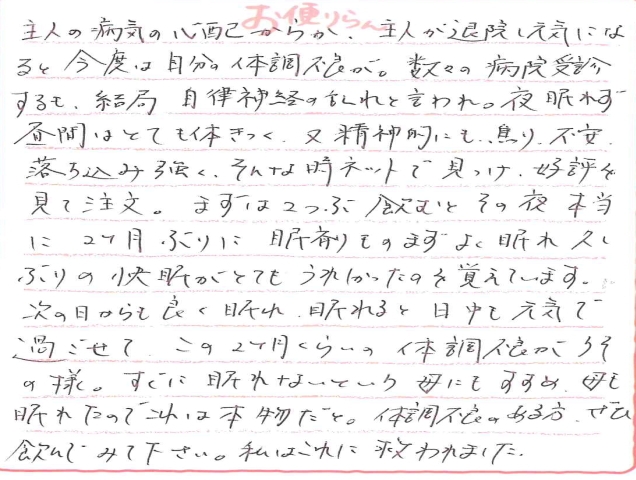 お便りらん
主人の病気の心配からか、主人が退院し元気にな
ると今度は自分の体調不良が。数々の病院受診
するも、結局 自律神経の乱れと言われ。夜眠れず
昼間はとても体きつく、又精神的にも、焦り、不安、
落ち込み強く、そんな時ネットで見つけ、好評を
見て注文。まずは2つぶ飲むとその夜本当
に2ケ月ぶりに眠剤ものまず よく眠れ 久し
ぶりの快眠がとてもうれしかったのを覚えています。
次の日からも良く眠れ、眠れると日中も元気で
過ごせて、この2ケ月くらいの体調不良がうそ
の様。すぐに眠れないという母にもすすめ、母も
眠れたのでこれは本物だと。体調不良のある方、ぜひ
飲んでみて下さい。私はこれに救われました。